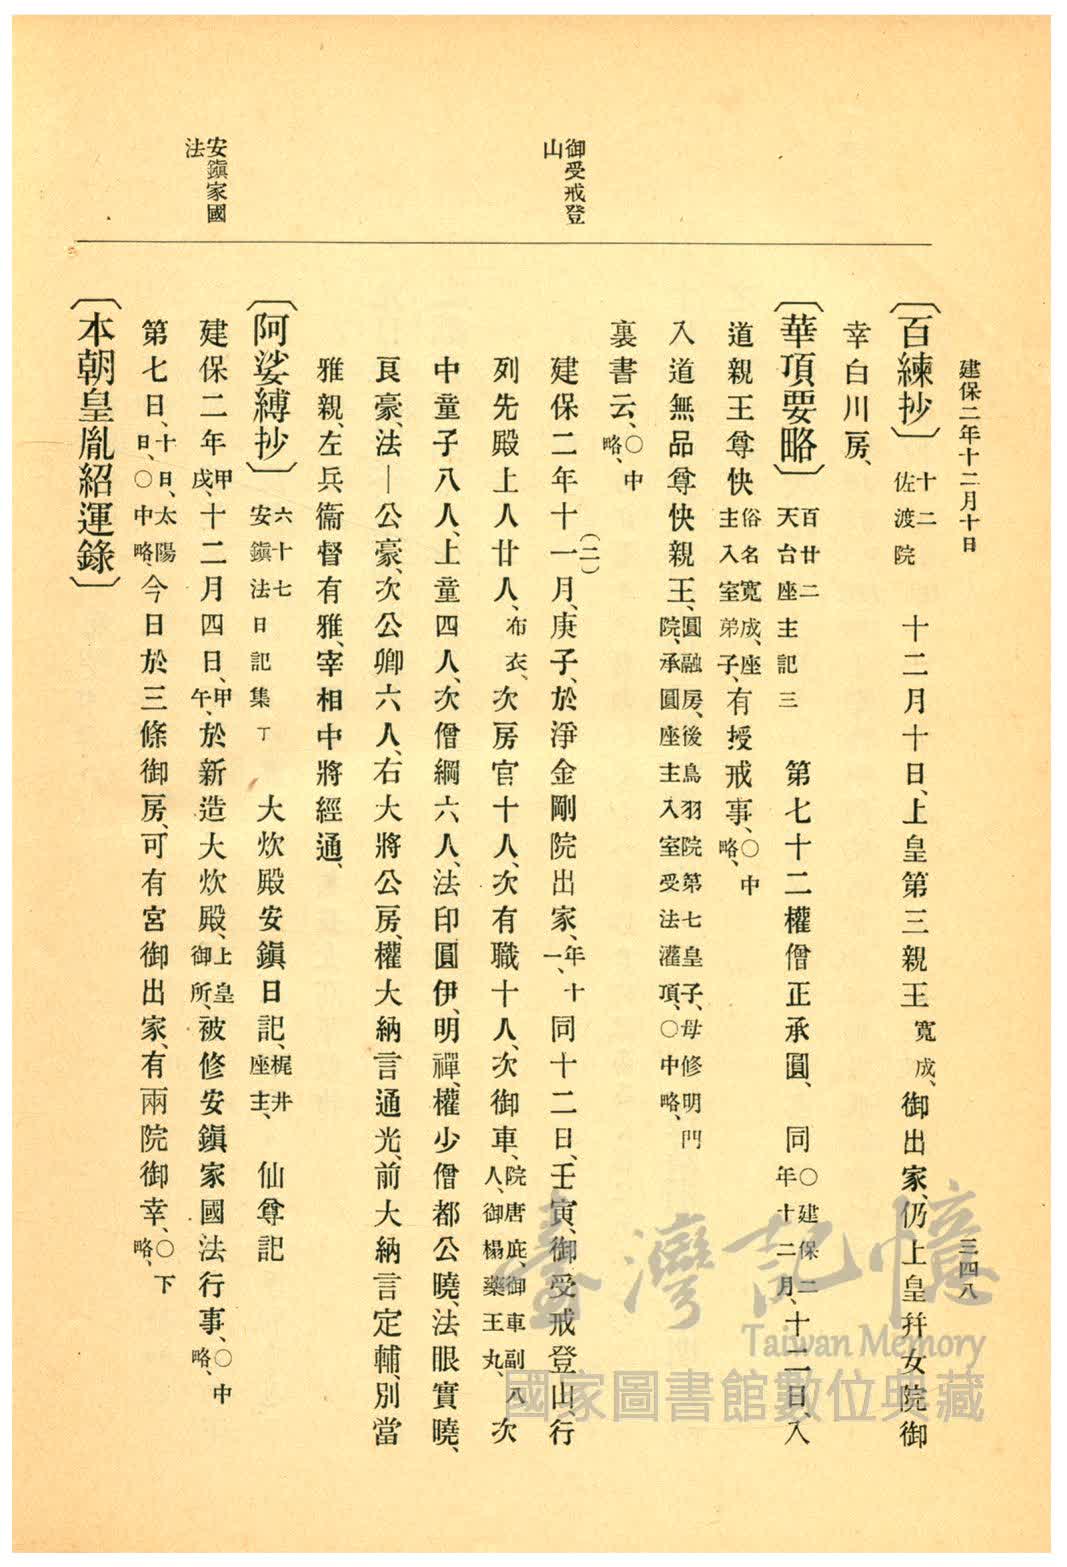 建保二年十二月十日
三四八
〔百練抄〕十二佐渡院　十二月十日、上皇第三親王寬成、御出家、仍上皇幷女院御
幸白川房、
〔華頂要略〕百廿二天台座主記三　第七十二權僧正承圓、　同〇建保二年十二月、十二日、入
道親王尊快俗名寬成、座主入室弟子、有授戒事、〇中略、
入道無品尊快親王、圓融房、後鳥羽院第七皇子、母修明門院、承圓座主入室受法灌頂、〇中略、
裏書云、〇中略、
建保二年十一(二)月、庚子、於淨金剛院出家、年十一、同十二日、壬寅、御受戒登山、行
列先殿上人廿人、布衣、次房官十人、次有職十人、次御車、院唐庇、御車副八人、御榻藥王丸、次
中童子八人、上童四人、次僧綱六人、法印圓伊、明禪、權少僧都公曉、法眼實曉、
良豪、法—公豪、次公卿六人、右大將公房、權大納言通光、前大納言定輔、別當
雅親、左兵衞督有雅、宰相中將經通、
〔阿娑縛抄〕六十七安鎭法日記集丁　大炊殿安鎭日記、梶井座主、　仙尊記
建保二年甲戌、十二月四日、甲午、於新造大炊殿、上皇御所、被修安鎭家國法行事、〇中略、
第七日、十日、太陽日、〇中略、今日於三條御房、可有宮御出家、有兩院御幸、〇下略、
〔本朝皇胤紹運錄〕
御受戒登
山
安鎭家國
法
臺灣記憶
Taiwan Memory
國家圖書館數位典藏